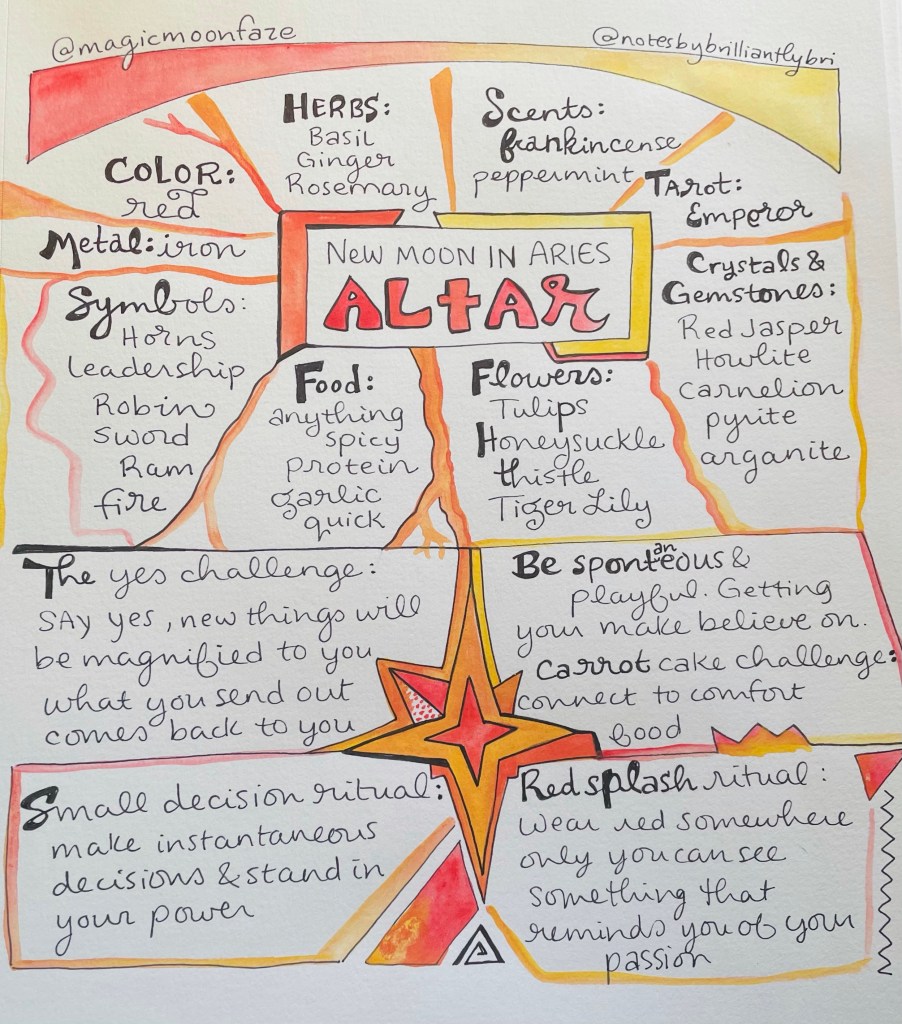 @magicmoonfaze
@notesbybrilliantlybri
HERBS:
Basil
Ginger
Rosemary
Scents:
frankincense
peppermint
COLOR:
red
TAROT:
Emperor
Metal: iron
NEW MOON IN ARIES
ALTAR
Symbols:
Horns
leadership
Robin
sword
Ram
fire
Crystals &
Gemstones:
Red Jasper
Howlite
carnelion
pyrite
arganite
Food:
anything
spicy
protein
garlic
quick
Flowers:
Tulips
Honeysuckle
thistle
Tiger Lily
The yes challenge:
SAY yes, new things will
be magnified to you
what you send out
comes back to you
Be spontaneous &
playful. Getting
your make believe on.
Carrot cake challenge:
connect to comfort
food
Small decision ritual:
make instantaneous
decisions & stand in
your power
Red splash ritual:
Wear red somewhere
only you can see
something that
reminds you of your
passion